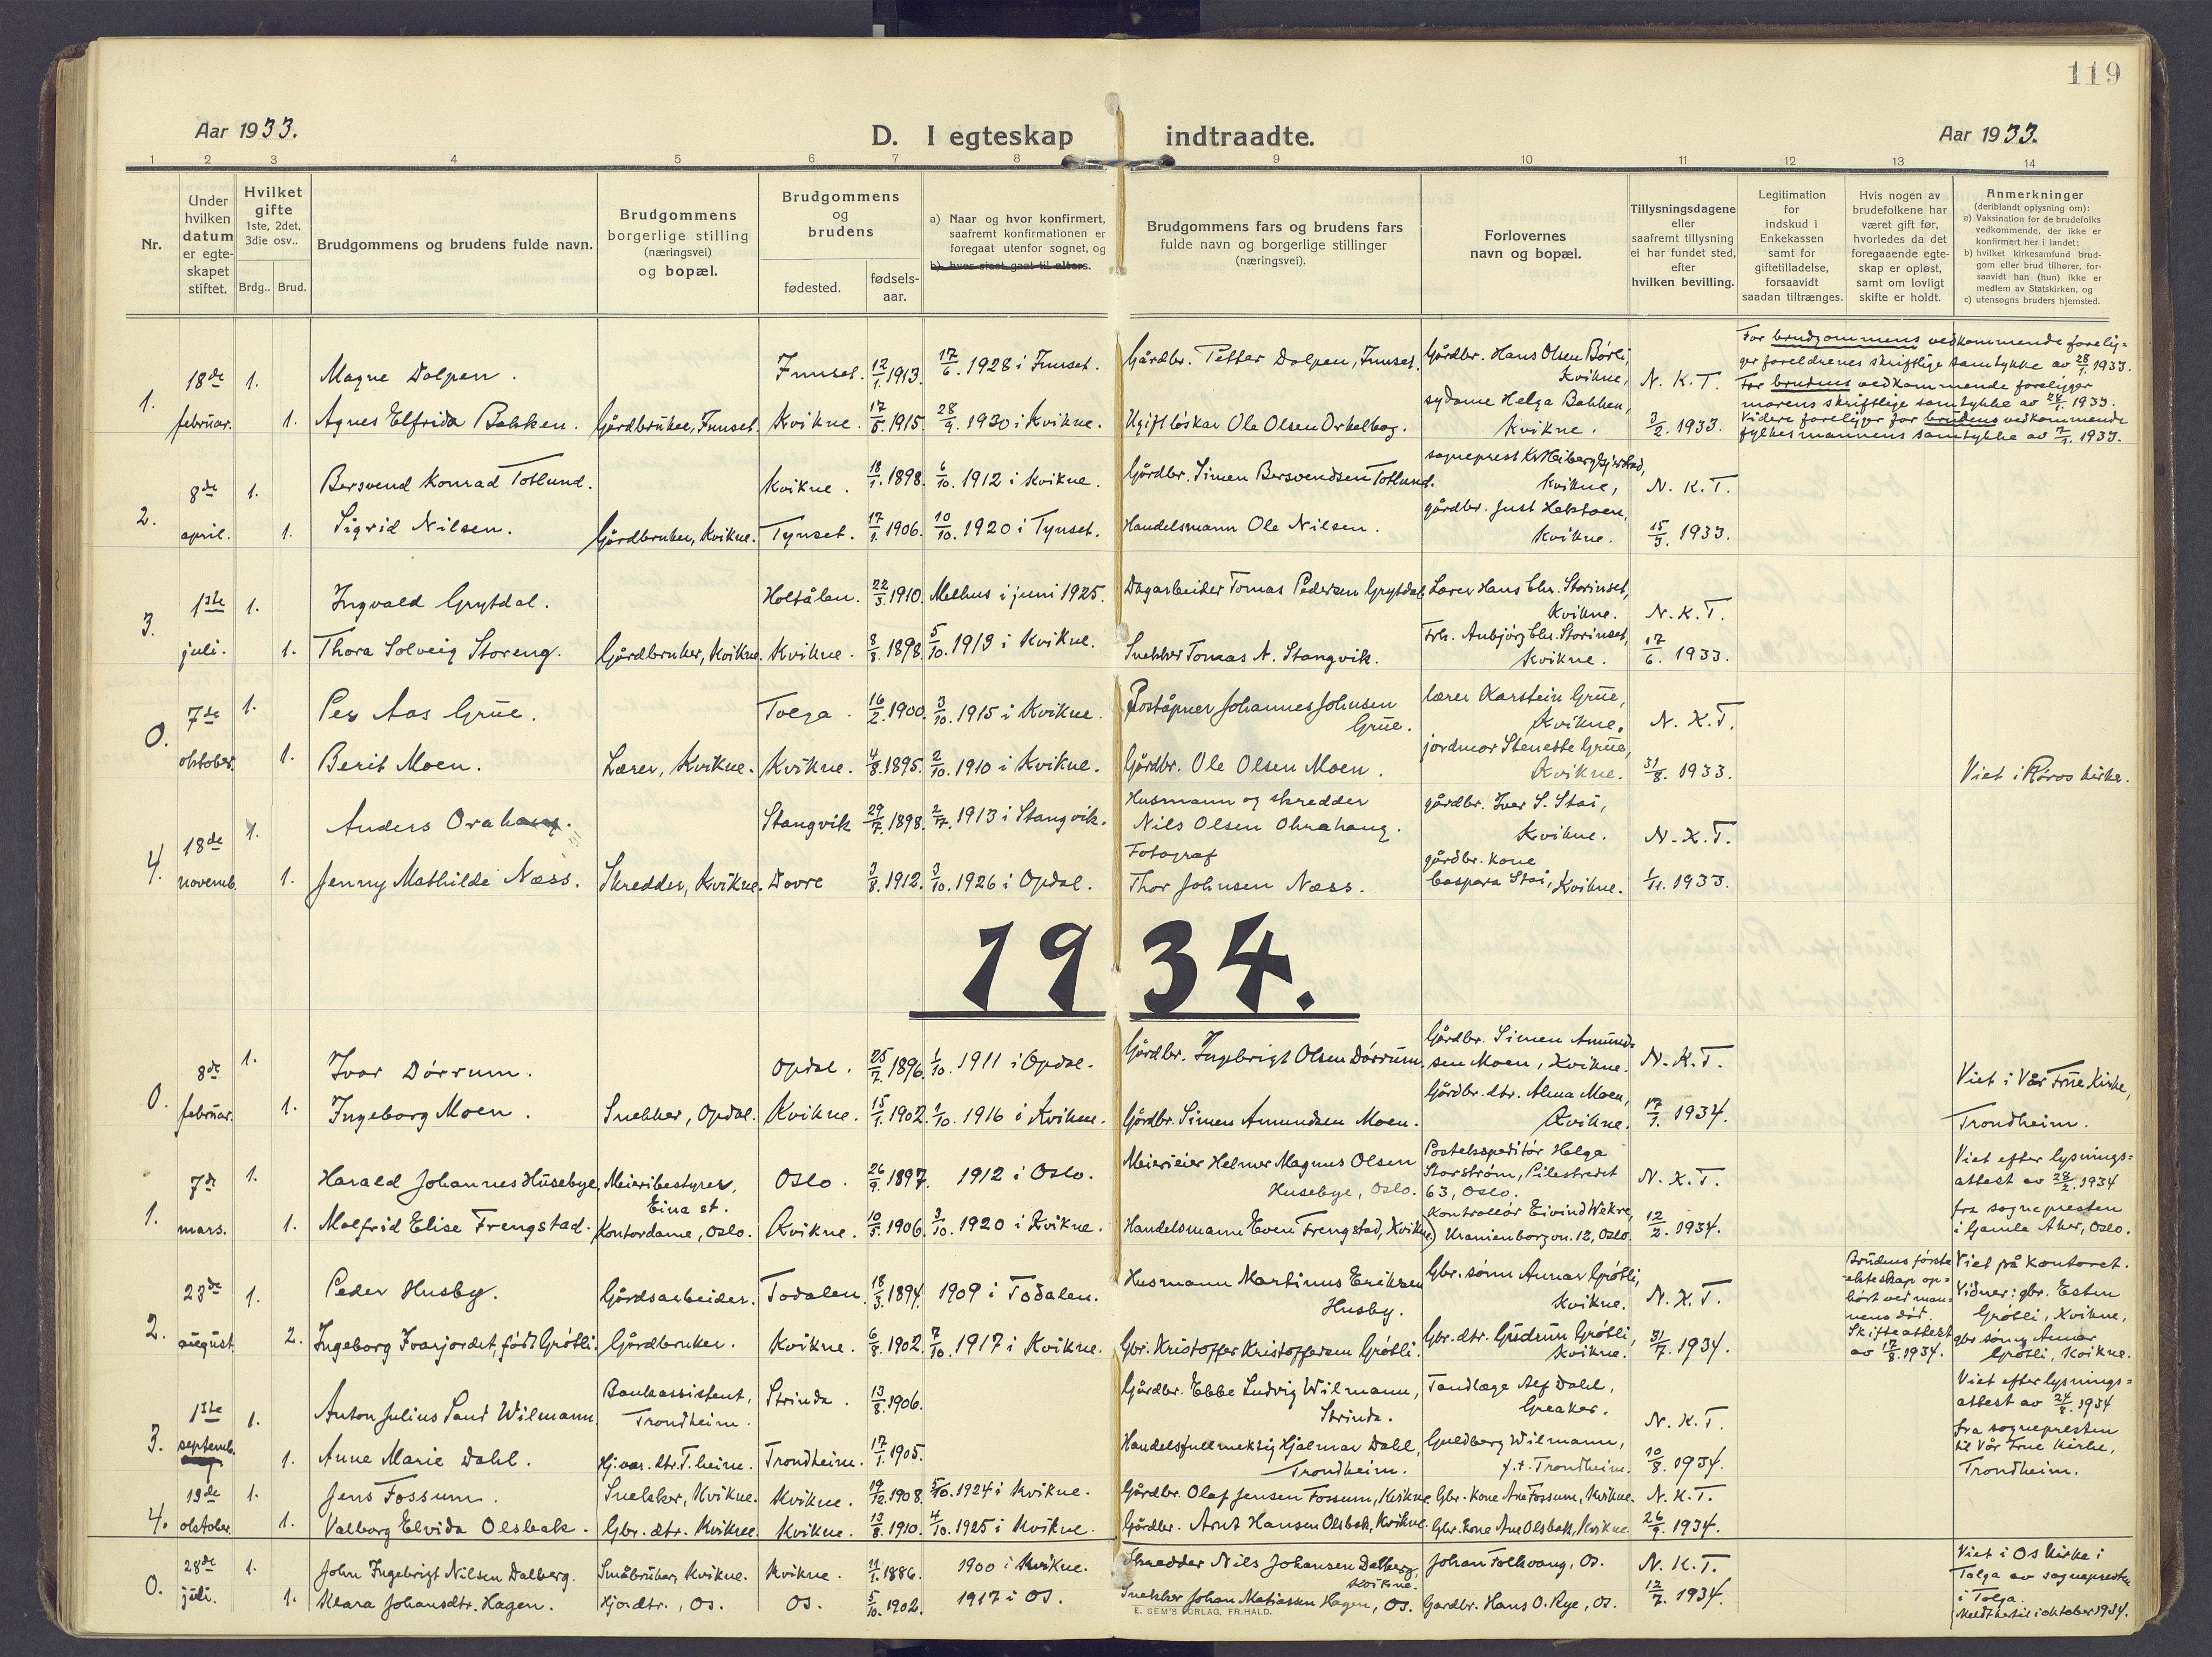 119
Aar 1933.
D. I egteskap indtraadte.
Aar 1933.
1 2 3 4 5 6 7 8 9 10 11 12 13 14
Nr.
Under hvilken datum er egte-skapet stiftet.
Hvilket gifte
1ste, 2det, 3die osv..
Brdg.. Brud.
Brudgommens og brudens fulde navn.
Brudgommens borgerlige stilling (næringsvei) og bopæl.
Brudgommens og brudens
fødested.
fødsels-aar.
a) Naar og hvor konfirmert, saafremt konfirmationen er foregaat utenfor sognet, og
b) hvor sidst gaat til alters.
Brudgommens fars og brudens fars fulde navn og borgerlige stillinger (næringsvei).
Forlovernes navn og bopæl.
Tillysningsdagene eller saafremt tillysning ei har fundet sted, efter hvilken bevilling.
Legitimation for indskud i Enkekassen samt for giftetilladelse, forsaavidt saadan tiltrænges.
Hvis nogen av brudefolkene har været gift før, hvorledes da det foregaaende egte-skap er opløst, samt om lovligt skifte er holdt.
Anmerkninger
(deriblandt oplysning om):
a) Vaksination for de brudefolks vedkommende, der ikke er konfirmert her i landet;
b) hvilket kirkesamfund brud-gom eller brud tilhører, for-saavidt han (hun) ikke er medlem av Statskirken, og
c) utensogns bruders hjemsted.
1. 18de februar. 1. Magne Dalpen. Innset. 12/1. 1913. 17/6. 1928 i Innset. Gårdbr. Petter Dalpen, Innset. Gårdbr. Hans Olsen Børli, Kvikne, N. K. T.
1. Agnes Elfrida Bakken. Gårdbruker, Innset. Kvikne. 17/5. 1915. 28/9. 1930 i Kvikne. Ugift løskar Ole Olsen Orkelbog. sydame Helga Bakken, Kvikne. 3/2. 1933.
For brudgommens vedkommende forelig-
ger foreldrenes skriftlige samtykke av 28/1. 1933.
For brudens vedkommende foreligger
morens skriftlige samtykke av 28/1. 1933.
Videre foreligger for brudens vedkommende
fylkesmannens samtykke av 7/2. 1933.
2. 8de april. 1. Bersvend Konrad Totlund. Kvikne. 18/1. 1898. 6/10. 1912 i Kvikne. Gårdbr. Simen Bersvendsen Totlund. sogneprest Kvikne, N. K. T.
1. Sigrid Nilsen. Gårdbruker, Kvikne. Tynset. 17/1. 1906. 10/10. 1920 i Tynset. Handelsmann Ole Nilsen. gårdbr. Just Hektoen, Kvikne. 15/3. 1933.
3. 1ste juli. 1. Ingvald Grytdal. Holtålen. 22/3. 1910. Melhus i juni 1925. Dagarbeider Tomas Pedersen Grytdal Lærer Hans Chr. Storinset, Kvikne. N. K. T.
1. Thora Solveig Storeng. Gårdbruker, Kvikne. Kvikne. 8/8. 1898. 5/10. 1913 i Kvikne. Snekker Tomas N. Stangvik. Frk. Anbjørg Chr. Storinset, Kvikne. 17/6. 1933.
0. 7de oktober. 1. Per Aas Grue. Tolga. 16/2. 1900. 3/10. 1915 i Kvikne. Poståpner Johannes Johnsen Grue. lærer Karstein Grue, Kvikne. N. K. T.
1. Berit Moen. Lærer, Kvikne. Kvikne. 4/8. 1895. 2/10. 1910 i Kvikne. Gårdbr. Ole Olsen Moen. jordmor Stenette Grue, Kvikne. 31/8. 1933. Viet i Røros kirke.
4. 18de novemb. 1. Anders Orahaug. Stangvik 29/7. 1898. 2/7. 1913 i Stangvik. Husmann og skredder Nils Olsen Ohrahaug. gårdbr. Iver S. Stai, Kvikne. N. K. T.
1. Jenny Mathilde Næss. Skredder, Kvikne. Dovre 3/8. 1912. 3/10. 1926 i Opdal. Fotograf Thor Johnsen Næss. gårdbr. kone Caspara Stai, Kvikne. 1/11. 1933.
1934.
0. 8de februar. 1. Ivar Dørrum. Opdal. 25/7. 1896. 1/10. 1911 i Opdal. Gårdbr. Ingebrigt Olsen Dørrum. Gårdbr. Simen Amund-sen Moen, Kvikne. N. K. T. Viet i Vår Frue Kirke,
1. Ingeborg Moen. Snekker, Opdal. Kvikne. 15/1. 1902. 1/10. 1916 i Kvikne. Gårdbr. Simen Amundsen Moen. Gårdbr. dtr. Alma Moen, Kvikne. 17/1. 1934. Trondheim.
1. 7de mars. 1. Harald Johannes Husebye, Meieribestyrer, Eina st. Oslo. 26/9. 1897. 1912 i Oslo. Meierieier Helmer Magnus Olsen Husebye, Oslo. Postekspeditør Helge Storstrøm, Pilestredet 63, Oslo. N. K. T. Viet efter lysnings-attest av 28/2. 1934
1. Malfrid Elise Frengstad. Kontordame, Oslo. Kvikne. 10/5. 1906. 3/10. 1920 i Kvikne. Handelsmann Even Frengstad, Kvikne) Kontrollør Eivind Wekre, Uranienborg v. 12, Oslo. 12/2. 1934. fra sognepresten i Gamle Aker, Oslo.
2. 23de august. 1. Peder Husby. Gårdsarbeider. Todalen. 18/3. 1894. 1909 i Todalen. Husmann Martinus Eriksen Husby. Gbr. sønn Annar Grøtli, Kvikne. N. K. T.
2. Ingeborg Ivarjordet, født Grøtli. Gårdbruker. Kvikne. 6/8. 1902. 7/10. 1917 i Kvikne. Gbr. Kristoffer Kristoffersen Grøtli. Gbr. dtr. Gudrun Grøtli, Kvikne. 31/7. 1934.
Brudens første ekteskap op-hørt ved man-nens død. Skifteattest av 17/8. 1934.
Viet på kontoret. Vidner: gbr. Esten Grøtli, Kvikne, gbr. sønn Annar Grøtli, Kvikne.
3. 1ste septemb. 1. Anton Julius Sand Wilmann. Bankassistent, Trondheim. Strinda. 13/8. 1906. Gårdbr. Ebbe Ludvig Wilmann, Strinda. Tandlæge Alf Dahl, Greaker. N. K. T. Viet efter lysnings-attest av 24/8. 1934
1. Anne Marie Dahl. Hj.vær. dtr. T.heim. Trondheim. 17/1. 1905. Handelsfullmektig Hjalmar Dahl, Trondheim. Guldberg Wilmann, f. t. Trondheim. 10/8. 1934. fra sognepresten til Vår Frue Kirke, Trondheim.
4. 19de oktober. 1. Jens Fossum. Snekker, Kvikne. Kvikne. 19/12. 1908. 5/10. 1924 i Kvikne. Gårdbr. Olaf Jensen Fossum, Kvikne. Gbr. kone Ane Fossum, Kvikne. N. K. T.
1. Valborg Elvida Olsbak. Gbr. dtr. Kvikne. Kvikne. 13/8. 1910. 4/10. 1925 i Kvikne. Gårdbr. Arnt Hansen Olsbak, Kvikne. Gbr. kone Ane Olsbakk, Kvikne 26/9. 1934.
0. 28de juli. 1. John Ingebrigt Nilsen Dalberg. Småbruker, Kvikne. Kvikne. 11/1. 1886. 1900 i Kvikne. Skredder Nils Johansen Dalberg, Kvikne. Johan Folkvang, Os. N. K. T. Viet i Os kirke i Tolga av sognepresten
1. Klara Johansdtr. Hagen. Hj.dtr., Os. Os. 5/10. 1902. 1917 i Os. Snekker Johan Matiassen Hagen, Os. Gardbr. Hans O. Rye, Os. 12/7. 1934. i Tolga. Meldt hertil i oktober 1934.
E. SEM'S FORLAG, FR.HALD.